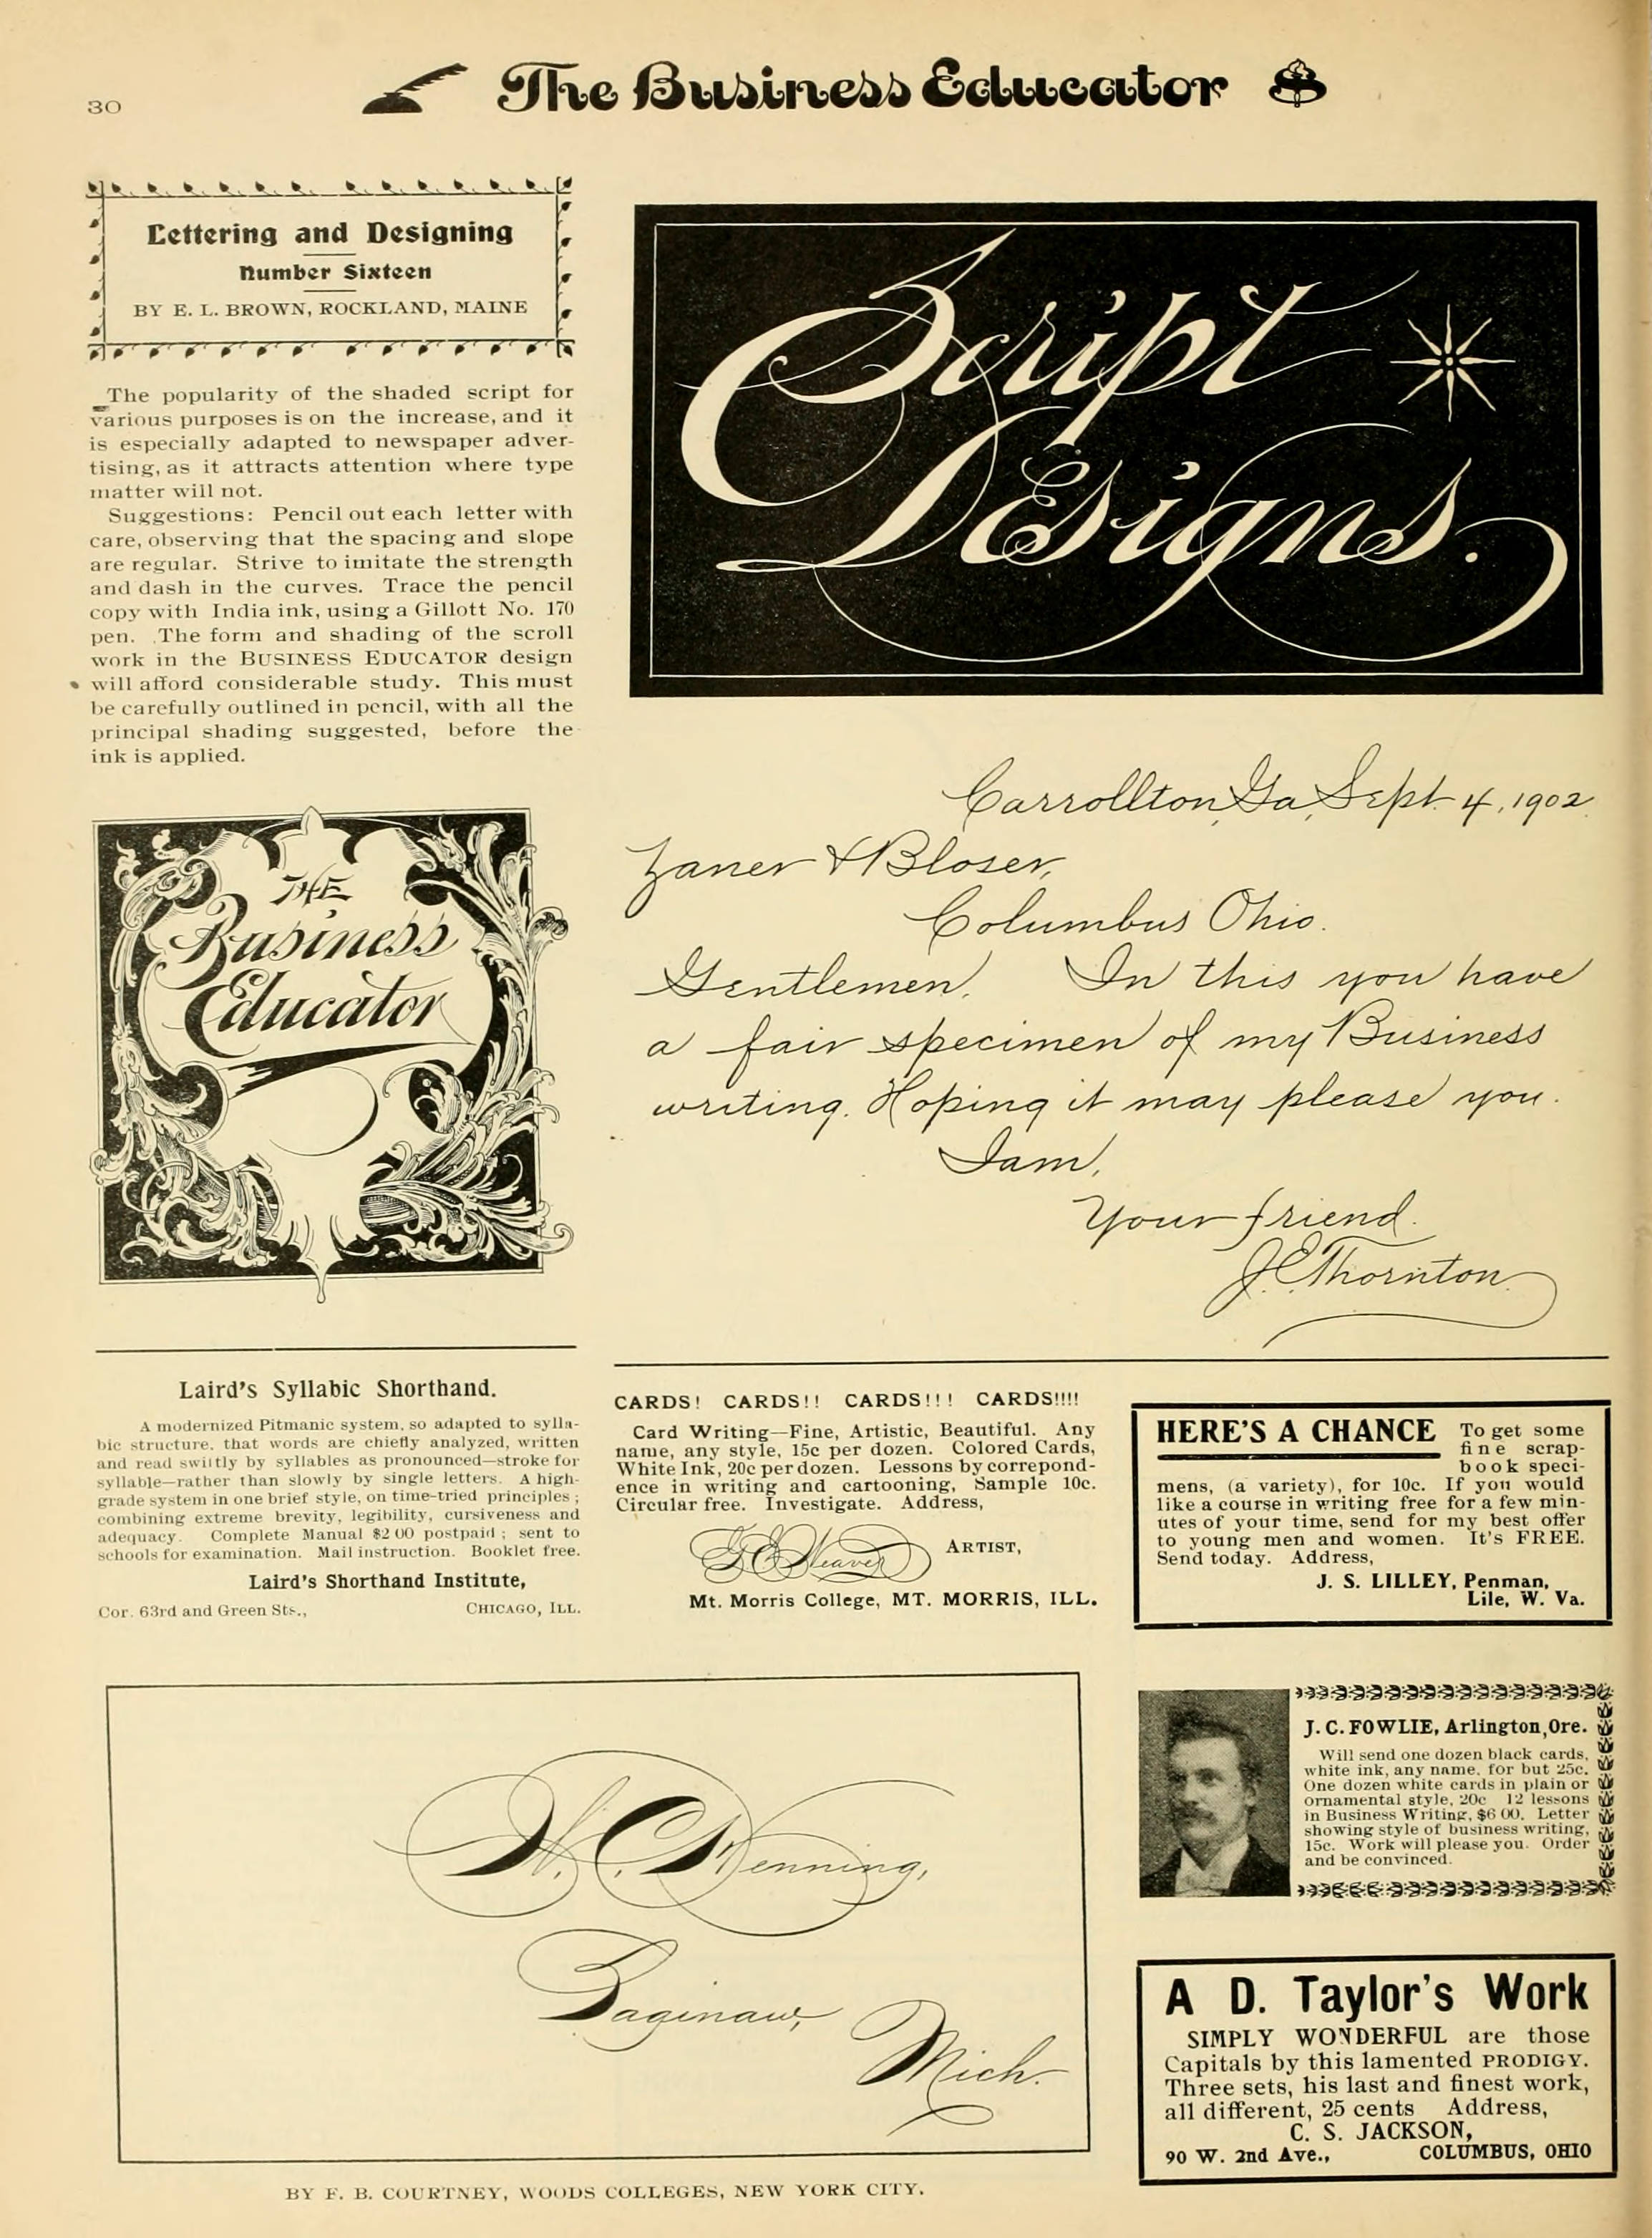 30
The Business Educator
Lettering and Designing
Number Sixteen
BY E. L. BROWN, ROCKLAND, MAINE
The popularity of the shaded script for
various purposes is on the increase, and it
is especially adapted to newspaper adver-
tising, as it attracts attention where type
matter will not.
Suggestions: Pencil out each letter with
care, observing that the spacing and slope
are regular. Strive to imitate the strength
and dash in the curves. Trace the pencil
copy with India ink, using a Gillott No. 170
pen. The form and shading of the scroll
work in the BUSINESS EDUCATOR design
will afford considerable study. This must
be carefully outlined in pencil, with all the
principal shading suggested, before the
ink is applied.
THE
Business
Educator
Script
Designs.
Carrollton, Ga, Sept. 4, 1902.
Zaner & Bloser,
Columbus Ohio.
Gentlemen. In this you have
a fair specimen of my Business
writing. Hoping it may please you.
I am,
Your friend.
J. E. Thornton
Laird's Syllabic Shorthand.
A modernized Pitmanic system, so adapted to sylla-
bic structure, that words are chiefly analyzed, written
and read swiftly by syllables as pronounced—stroke for
syllable—rather than slowly by single letters. A high-
grade system in one brief style, on time-tried principles;
combining extreme brevity, legibility, cursiveness and
adequacy. Complete Manual $2 00 postpaid; sent to
schools for examination. Mail instruction. Booklet free.
Laird's Shorthand Institute,
Cor. 63rd and Green Sts., CHICAGO, ILL.
CARDS! CARDS!! CARDS!!! CARDS!!!!
Card Writing—Fine, Artistic, Beautiful. Any
name, any style, 15c per dozen. Colored Cards,
White Ink, 20c per dozen. Lessons by correpond-
ence in writing and cartooning, Sample 10c.
Circular free. Investigate. Address,
G E Weaver ARTIST,
Mt. Morris College, MT. MORRIS, ILL.
HERE'S A CHANCE To get some
fine scrap-
book speci-
mens, (a variety), for 10c. If you would
like a course in writing free for a few min-
utes of your time, send for my best offer
to young men and women. It's FREE.
Send today. Address,
J. S. LILLEY, Penman,
Lile, W. Va.
W. C. Henning,
Saginaw,
Mich.
BY F. B. COURTNEY, WOODS COLLEGES, NEW YORK CITY.
J. C. FOWLIE, Arlington, Ore.
Will send one dozen black cards,
white ink, any name, for but 25c.
One dozen white cards in plain or
ornamental style, 20c 12 lessons
in Business Writing, $6 00. Letter
showing style of business writing,
15c. Work will please you. Order
and be convinced.
A D. Taylor's Work
SIMPLY WONDERFUL are those
Capitals by this lamented PRODIGY.
Three sets, his last and finest work,
all different, 25 cents Address,
C. S. JACKSON,
90 W. 2nd Ave., COLUMBUS, OHIO